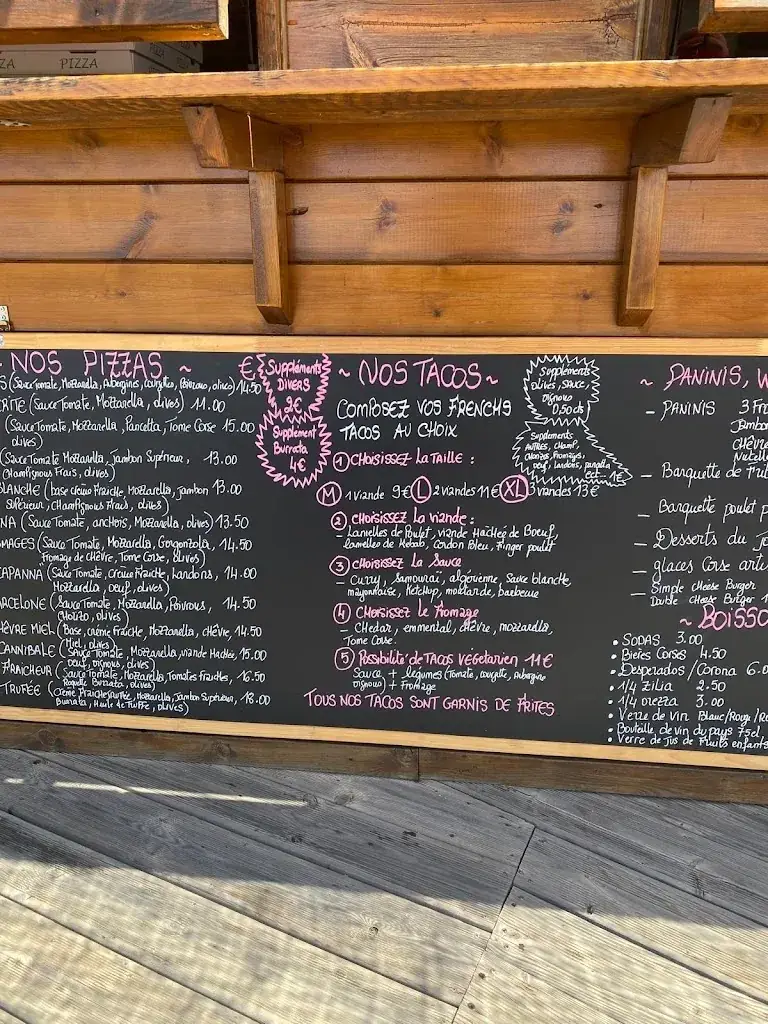 PIZZA
PIZZA
NOS PIZZAS ~
€
(Sauce Tomate, Mozzarella, Aubergines, Courgettes, Poivrons, olives) 14.50
(Sauce Tomate, Mozzarella, olives) 11.00
(Sauce Tomate, Mozzarella, Pancetta, Tome Corse 15.00
olives)
(Sauce Tomate Mozzarella, Jambon Supérieur, 13.00
Champignons Frais, olives)
BLANCHE (base crème Fraîche, Mozzarella, Jambon 13.00
Supérieur, Champignons Frais, olives)
NA (Sauce Tomate, anchois, Mozzarella, olives) 13.50
MAGES (Sauce Tomate, Mozzarella, Gorgonzola, 14.50
Fromage de CHÈVRE, Tome Corse, olives)
CAPANNA (Sauce Tomate, Crème Fraîche, Lardons, 14.00
Mozzarella, oeuf, olives)
ARCELONE (Sauce Tomate, Mozzarella, Poivrons, 14.50
Chorizo, olives)
ÈVRE MIEL (Base crème Fraîche, Mozzarella, CHÈVRE, 14.50
Miel, olives)
CANNIBALE (Sauce Tomate, Mozzarella, viande Hachée, 15.00
oeuf, oignons, olives)
FRAICHEUR (Sauce Tomate, Mozzarella, Tomates Fraîches, 16.50
Roquette Burrata, olives)
TRUFÉE (Crème Fraîche truffée, Mozzarella, Jambon Supérieur, 18.00
Burrata, Huile de Truffe, olives)
Suppléments
DIVERS
2€
Supplement
Burrata
4€
~ NOS TACOS ~
COMPOSEZ VOS FRENCHS
TACOS AU CHOIX
① CHOISISSEZ LA TAILLE :
M 1 viande 9€ L 2 viandes 11€ XL 3 viandes 13€
② CHOISISSEZ La viande :
- Lamelles de Poulet, viande Hachée de Boeuf,
lamelles de Kebab, Cordon Bleu, Finger poulet
③ CHOISISSEZ La Sauce
- Curry, samouraï, algérienne, Sauce blanche,
mayonnaise, Ketchup, moutarde, barbecue
④ CHOISISSEZ Le Fromage
- Chedar, emmental, chèvre, mozzarella,
Tome Corse.
⑤ Possibilité de TACOS VÉGÉTARIEN 11€
Sauce + légumes (Tomate, courgette, aubergine
oignons) + Fromage
TOUS NOS TACOS SONT GARNIS DE FRITES
Suppléments
Olives, sauce,
oignons
0,50cts
Suppléments
AUTRES, CHAMP,
CHORIZO, Fromages,
oeuf, lardons, pancetta
ect. 1€
~ PANINIS, W
- PANINIS 3 Fro
Jambon
CHÈVRE
Nutella
- Barquette de Frit
- Barquette poulet p
- Desserts du jo
- glaces Corse arti
- Simple cheese Burger
Double cheese Burger 1
~ BOISSO
• SODAS 3.00
• Bières Corses 4.50
• Desperados / Corona 6.0
• 1/4 Zilia 2.50
• 1/4 orezza 3.00
• Verre de vin Blanc/Rouge/Ro
• Bouteille de vin du pays 75cl
• Verre de Jus de Fruits enfants